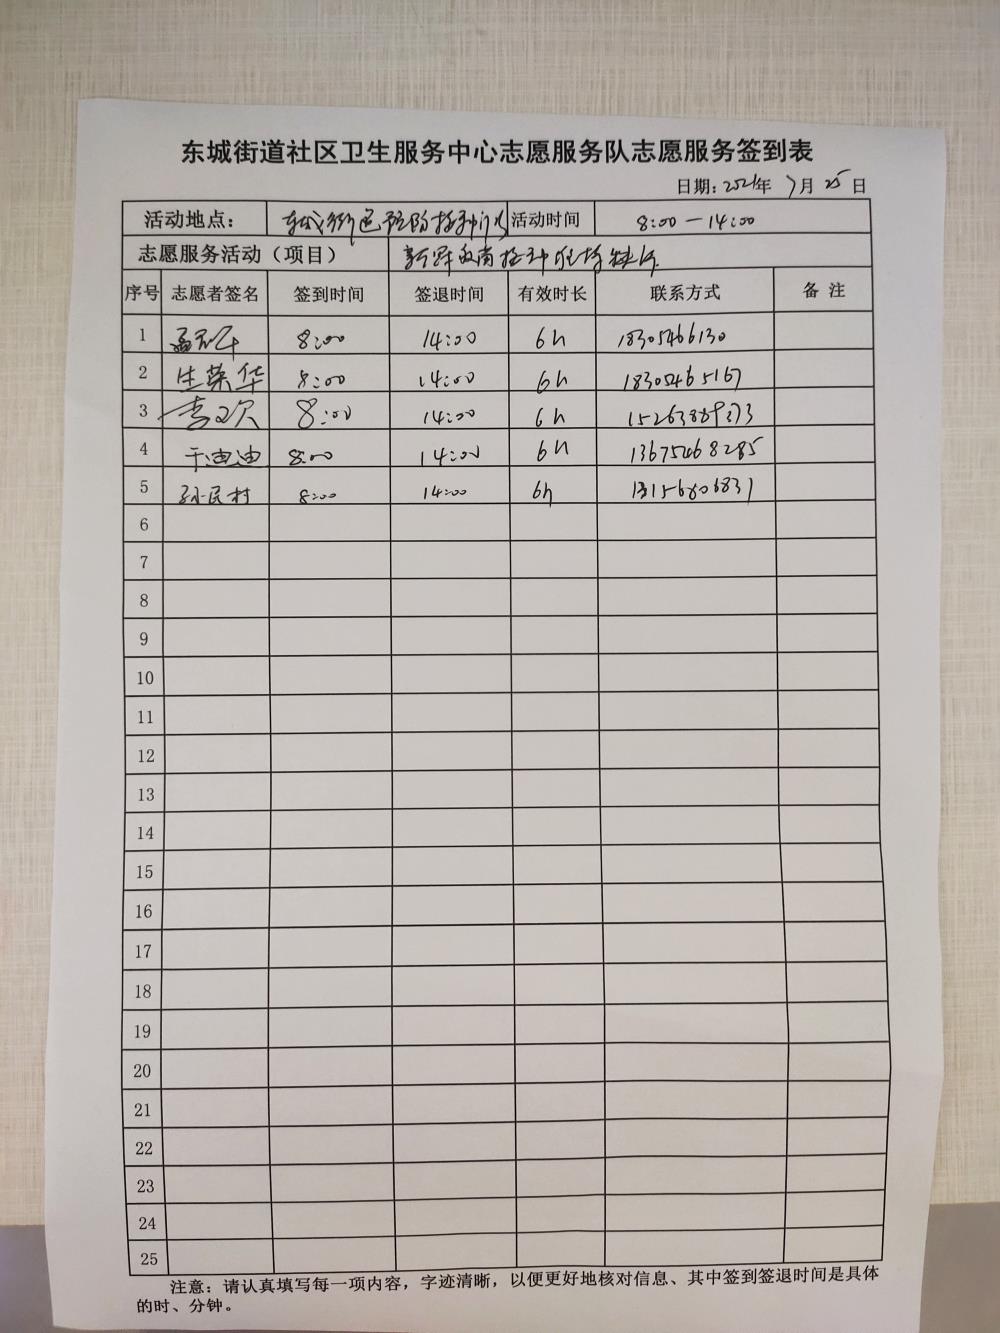 东城街道社区卫生服务中心志愿服务队志愿服务签到表
日期：2021年 7月 25日
活动地点： 东城街道预防接种门诊 活动时间 8:00－14:00
志愿服务活动（项目） 新冠疫苗接种现场
序号 志愿者签名 签到时间 签退时间 有效时长 联系方式 备 注
1 8:00 14:00 6h 18305466130
2 生荣华 8:00 14:00 6h 18305465167
3 李欢 8:00 14:00 6h 15263889373
4 于迪迪 8:00 14:00 6h 13675468285
5 孙民村 8:00 14:00 6h
6
7
8
9
10
11
12
13
14
15
16
17
18
19
20
21
22
23
24
25
注意：请认真填写每一项内容，字迹清晰，以便更好地核对信息、其中签到签退时间是具体
的时、分钟。